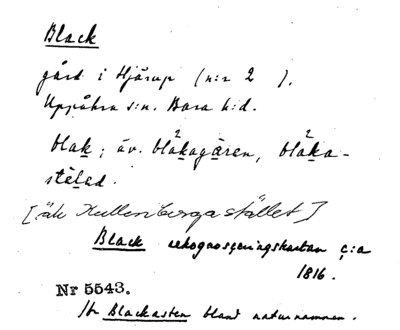 Black
gård i Hjärup (n:r 2 ).
Uppåkra s:n. Bara h:d.
blak; äv. blåkagåren, blåka-
steled.
[äk Kullenbergastället]
Black rekognosceringskartan c:a
1816.
Nr 5543.
Jfr Blackasten bland naturnamnen.